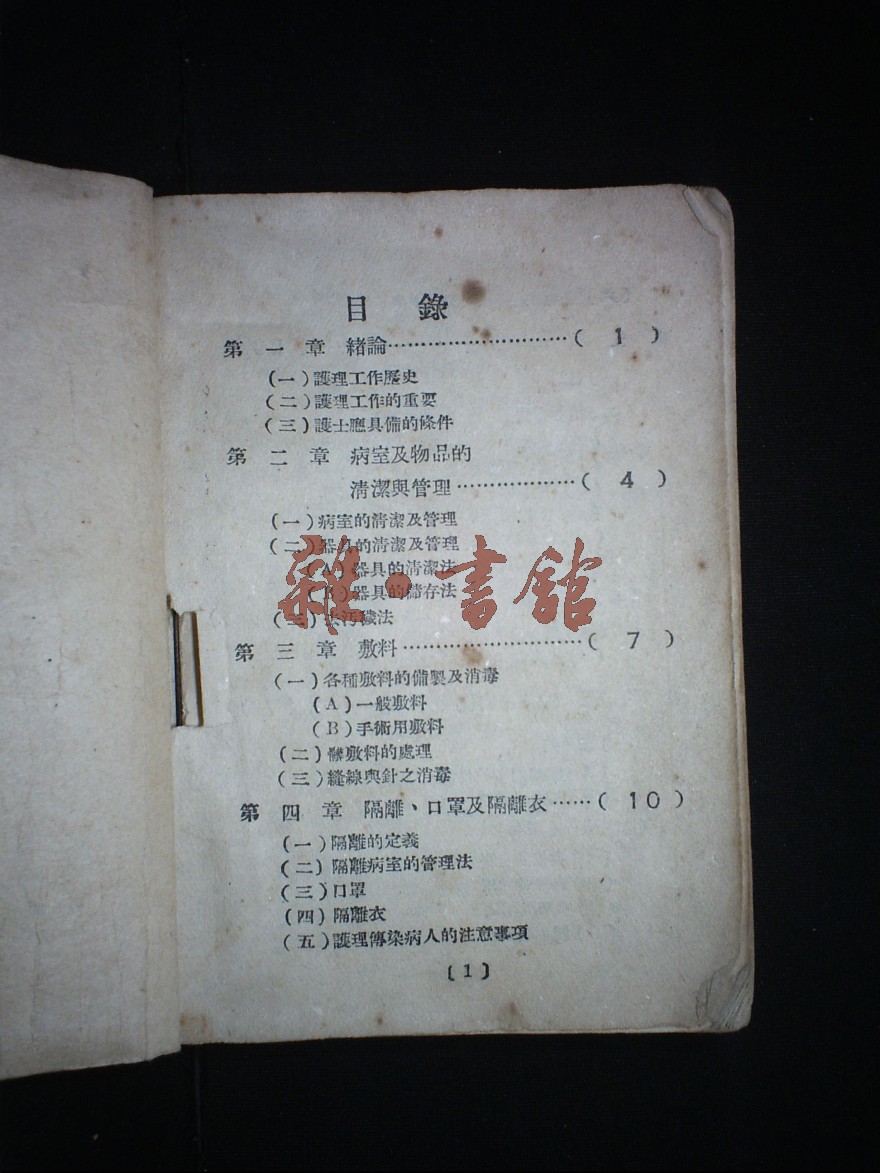 目錄
第一章 緒論……………………( 1 )
(一)護理工作歷史
(二)護理工作的重要
(三)護士應具備的條件
第二章 病室及物品的
清潔與管理………………( 4 )
(一)病室的清潔及管理
(二)器具的清潔及管理
(A)器具的清潔法
(B)器具的儲存法
(三)去污穢法
第三章 敷料……………………( 7 )
(一)各種敷料的備製及消毒
(A)一般敷料
(B)手術用敷料
(二)髒敷料的處理
(三)縫線與針之消毒
第四章 隔離、口罩及隔離衣……( 10 )
(一)隔離的定義
(二)隔離病室的管理法
(三)口罩
(四)隔離衣
(五)護理傳染病人的注意事項
(1)
雜·書館